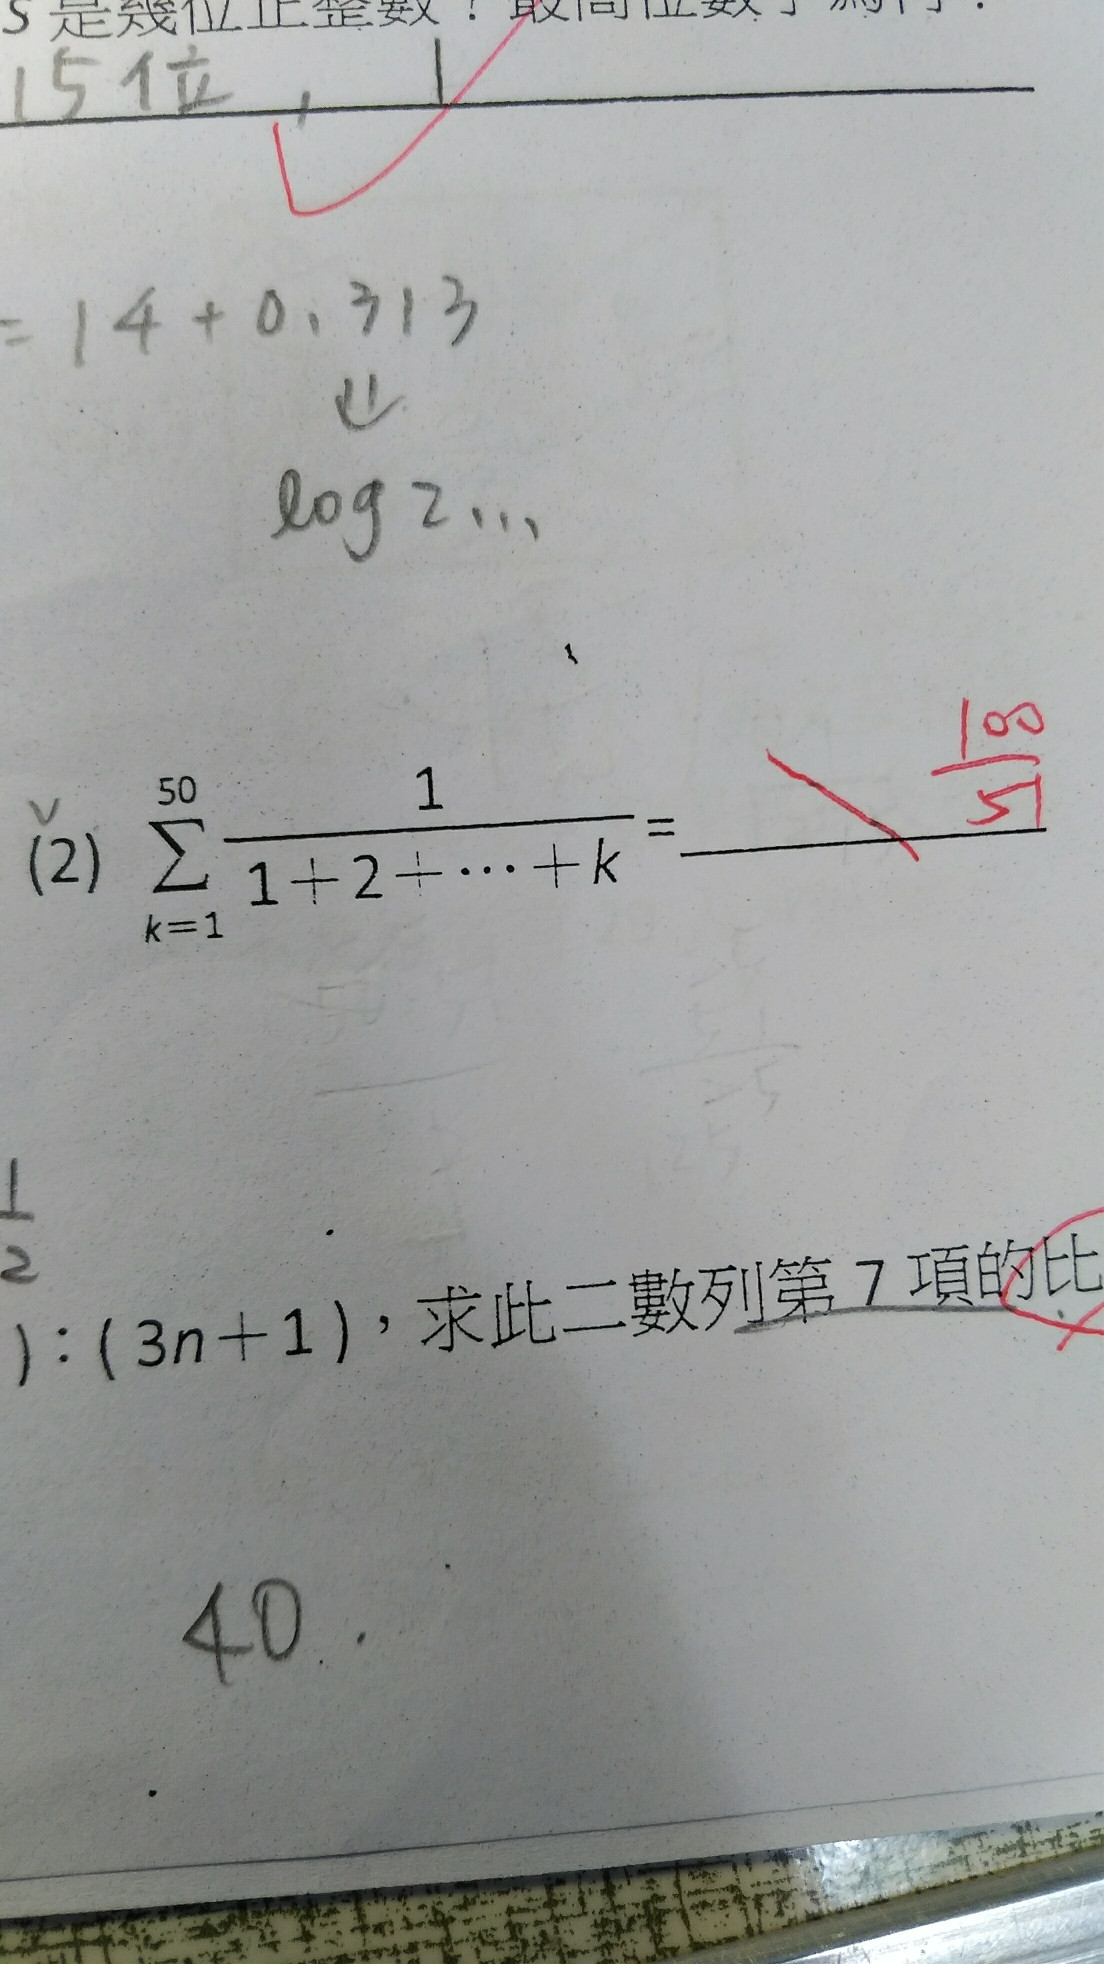 S 是幾位正整數？最高位數字為何？
15位, 1
= 14 + 0.313
⇓
log 2...
(2) \sum_{k=1}^{50} \frac{1}{1+2+⋯+k} =
\frac{100}{51}
\frac{1}{2}
) : (3n+1)，求此二數列第 7 項的比
40